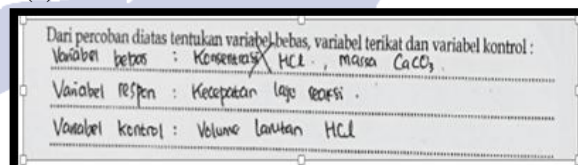 Dari percoban diatas tentukan variabel bebas, variabel terikat dan variabel kontrol :
Variabel bebas : Konsentrasi HCl , massa CaCO3
Variabel respon : Kecepatan laju reaksi .
Variabel kontrol : Volume larutan HCl